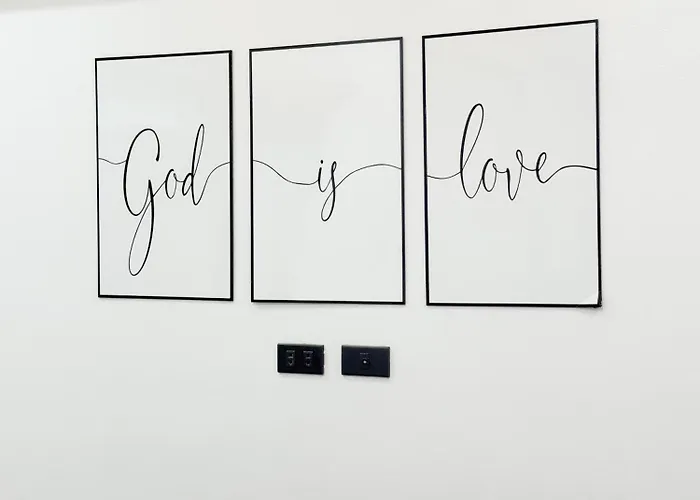 God is love